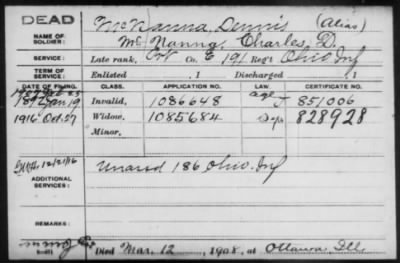 DEAD
McNanna, Dennis (Alias)
NAME OF SOLDIER: McNanna, Charles, D.
SERVICE: Late rank, Co. E 191 Reg't Ohio Inf
TERM OF SERVICE: Enlisted , 1 Discharged , 1
DATE OF FILING. CLASS. APPLICATION NO. LAW. CERTIFICATE NO.
1892 Jan 19 Invalid, 1086648 851006
1916 Oct. 27 Widow, 1085684 828928
Minor.
12/21/16
ADDITIONAL SERVICES: Unassd 186 Ohio. Inf
REMARKS:
Died Mar. 12, 1908, at Ottawa Ill